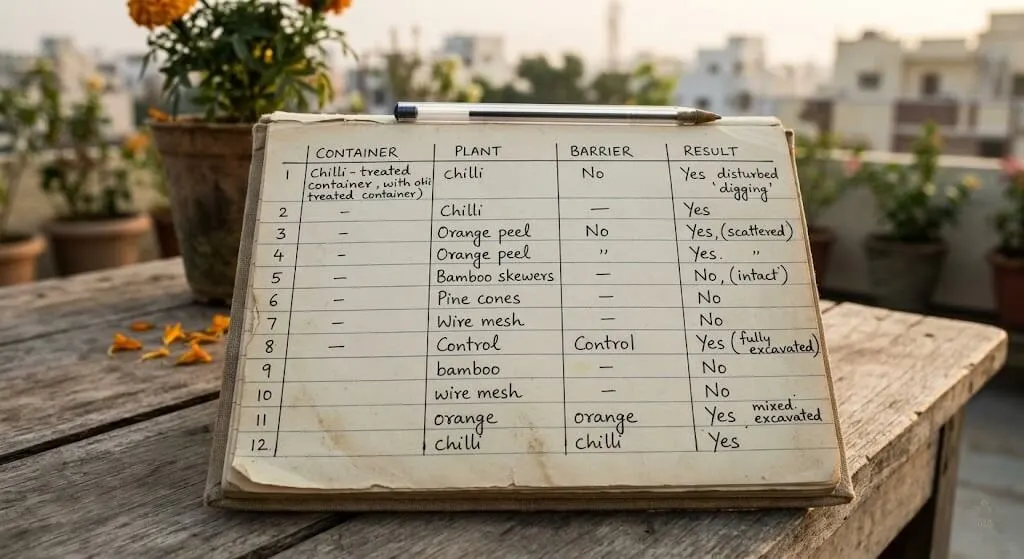 CONTAINER PLANT BARRIER RESULT
1 Chilli - treated Chilli No Yes disturbed
container, with 'digging'
treated container)
2 – Chilli — Yes
3 – Orange peel No Yes, (scattered)
4 – Orange peel " Yes. "
5 – Bamboo skewers — No, (intact)
6 – Pine cones — No
7 – Wire mesh — No
8 – Control Control Yes (fully
excavated)
9 bamboo — No
10 wire mesh — No
11 orange orange Yes mixed.
excavated
12 chilli chilli Yes